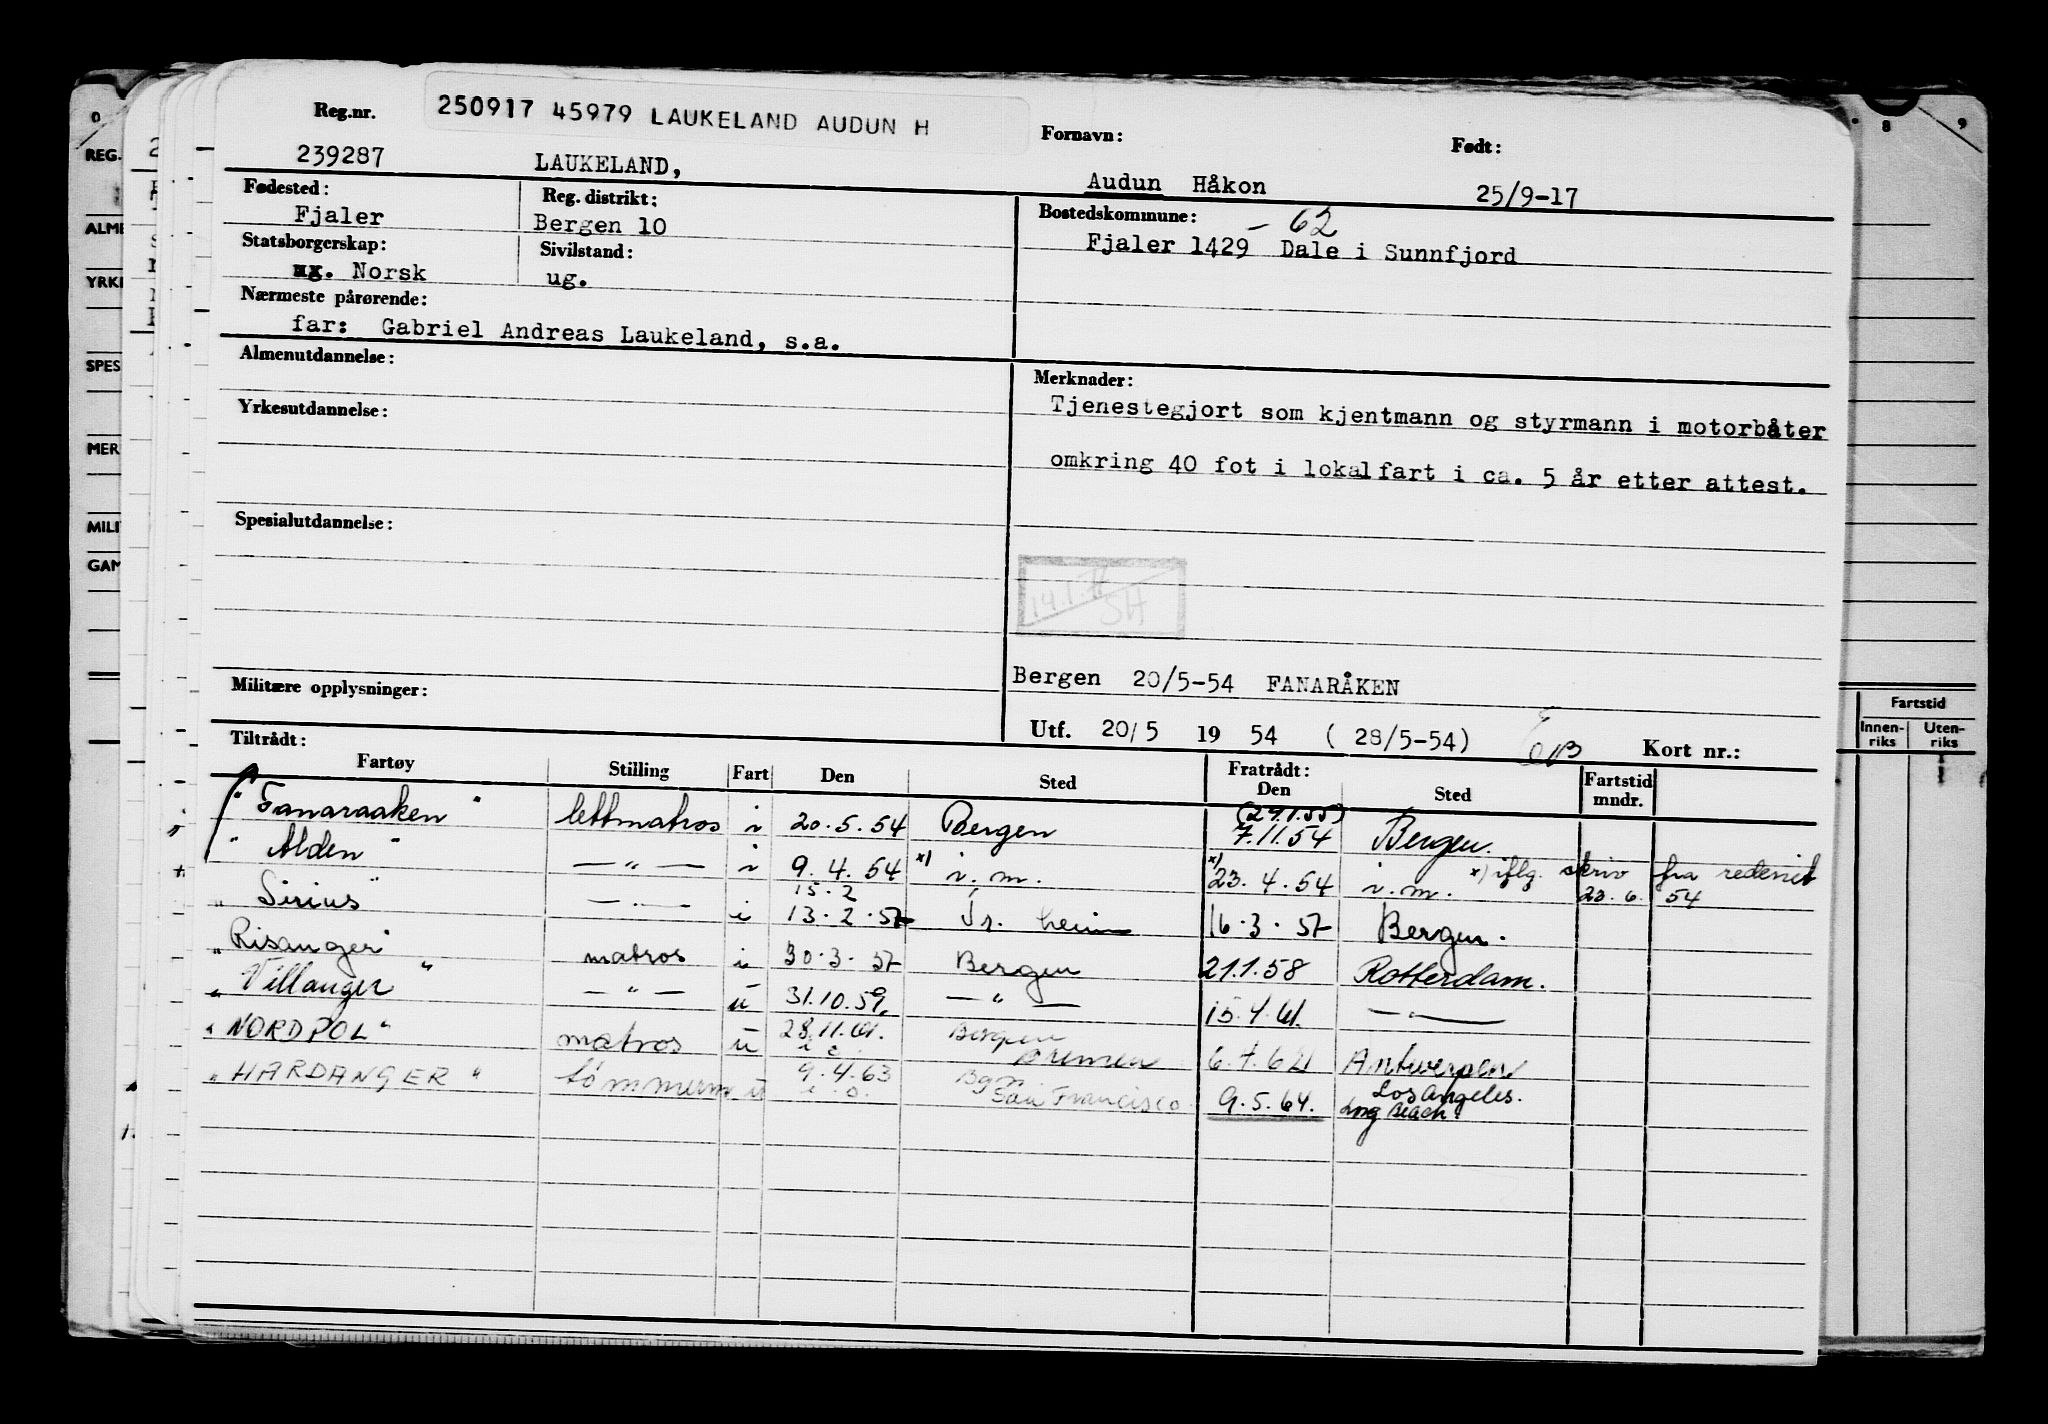 250917 45979 LAUKELAND AUDUN H
Reg.nr. Fornavn: Født:
239287 LAUKELAND, Audun Håkon 25/9-17
Fødested: Reg. distrikt: Bostedskommune: - 62
Fjaler Bergen 10 Fjaler 1429 Dale i Sunnfjord
Statsborgerskap: Sivilstand:
Norsk ug.
Nærmeste pårørende:
far: Gabriel Andreas Laukeland, s.a.
Almenutdannelse:
Merknader:
Tjenestegjort som kjentmann og styrmann i motorbåter
omkring 40 fot i lokalfart i ca. 5 år etter attest.
Yrkesutdannelse:
Spesialutdannelse:
SH
Militære opplysninger:
Bergen 20/5-54 FANARÅKEN
Utf. 20/5 1954 (28/5-54) Kort nr.:
Tiltrådt: Fratrådt:
Fartøy Stilling Fart Den Sted Den Sted Fartstid mndr.
"Fanaraaken" lettmatros i 20.5.54 Bergen (29.1.55) 7.11.54 Bergen.
"Alden" — " — i 9.4.54 x) i.m. x) 23.4.54 i.m. x) iflg. skriv fra rederiet 23.6.54
"Sirius" — " — i 15.2 13.2.57 Tr.heim 16.3.57 Bergen.
"Risanger" matros i 30.3.57 Bergen 21.1.58 Rotterdam.
"Villanger" — " — u 31.10.59. — " — 15.4.61. — " —
"NORDPOL" matros u 28.11.61. Bergen Bremen 6.7.62 Antwerpen
"HARDANGER" tømmerm u 9.4.63 Bgn San Francisco 9.5.64. Los Angeles. Long Beach.
REG.
ALME
YRKE
SPES
MER
MILI
GAM
8 9
Fartstid
Innen-riks Uten-riks